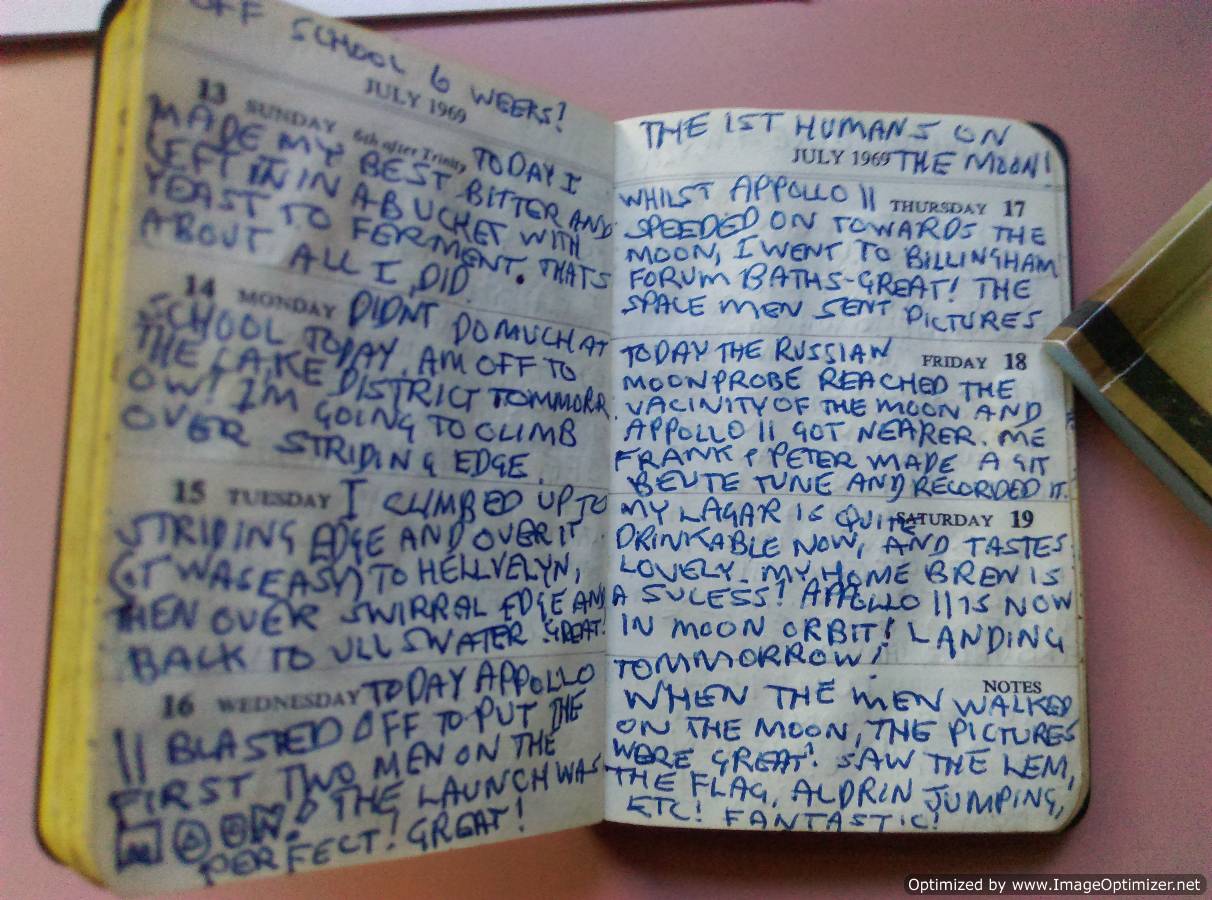 OFF SCHOOL 6 WEEKS!
JULY 1969
13 SUNDAY 6th after Trinity TODAY I
MADE MY BEST BITTER AND
LEFT IT IN A BUCKET WITH
YEAST TO FERMENT. THATS
ABOUT ALL I DID.
14 MONDAY DIDNT DO MUCH AT
SCHOOL TODAY. AM OFF TO
THE LAKE DISTRICT TOMMORR
OW! IM GOING TO CLIMB
OVER STRIDING EDGE.
15 TUESDAY I CLIMBED UP TO
STRIDING EDGE AND OVER IT
(IT WAS EASY) TO HELLVELYN,
THEN OVER SWIRRAL EDGE AND
BACK TO ULLSWATER GREAT!
16 WEDNESDAY TODAY APPOLLO
11 BLASTED OFF TO PUT THE
FIRST TWO MEN ON THE
MOON! THE LAUNCH WAS
PERFECT! GREAT!
THE 1ST HUMANS ON
JULY 1969 THE MOON!
WHILST APPOLLO 11 THURSDAY 17
SPEEDED ON TOWARDS THE
MOON, I WENT TO BILLINGHAM
FORUM BATHS-GREAT! THE
SPACE MEN SENT PICTURES
TODAY THE RUSSIAN FRIDAY 18
MOONPROBE REACHED THE
VACINITY OF THE MOON AND
APPOLLO 11 GOT NEARER. ME
FRANK & PETER MADE A GIT
BEUTE TUNE AND RECORDED IT.
MY LAGAR IS QUITE SATURDAY 19
DRINKABLE NOW, AND TASTES
LOVELY. MY HOME BREW IS
A SUCESS! APPOLLO 11 IS NOW
IN MOON ORBIT! LANDING
TOMMORROW!
NOTES
WHEN THE MEN WALKED
ON THE MOON, THE PICTURES
WERE GREAT! SAW THE LEM,
THE FLAG, ALDRIN JUMPING,
ETC! FANTASTIC!
Optimized by www.ImageOptimizer.net